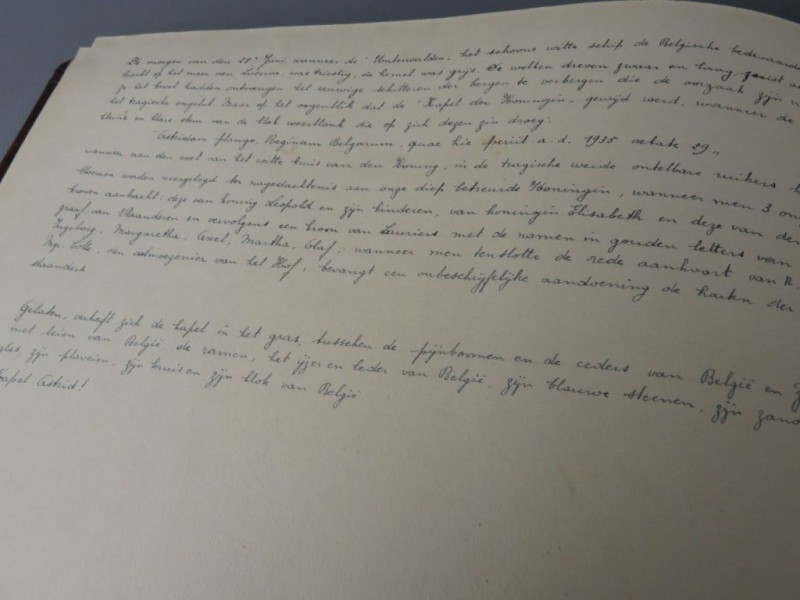 De morgen van den 18n Juni, wanneer de "Unterwalden", het schoone witte schip de Belgische bedevaarders
bracht op het meer van Luzern, was triestig, de hemel was grijs. De wolken dreven zwaar en laag,
ze het doel hadden ontvangen het eeuwige schitteren der bergen te verbergen die de oorzaak zijn
het tragische ongeluk. Maar op het oogenblik dat de "Kapel der Koningin" gewijd werd, wanneer de
kluis en klare stem van de klok weerklonk die op zich dezen zin droeg:
"Astridam plango, Reginam Belgarum, quae hic periit a.d. 1935 aetate 29",
wanneer aan den voet van het witte kruis van den Koning, in de tragische weide ontelbare ruikers
bloemen werden neergelegd ter nagedachtenis aan onze diep betreurde Koningin, wanneer men 3
kronen aanbracht: deze van koning Leopold en zijn kinderen, van koningin Elisabeth en deze van den
graaf van Vlaanderen en vervolgens een kroon van Lauriers met de namen in gouden letters van
Ingeborg, Margaretha, Axel, Martha, Olaf; wanneer men tenslotte de rede aanhoort van
Mgr. Colle, den aalmoezenier van het Hof, bevangt een onbeschrijfelijke aandoening de harten der
Gelaten, verheft zich de kapel in het gras, tusschen de pijnboomen en de ceders van België en
met leien van België de ramen, het ijzer en leder van België, zijn blauwe steenen, zijn
zijn plaveien, zijn kruis en zijn klok van België
Kapel Astrid!